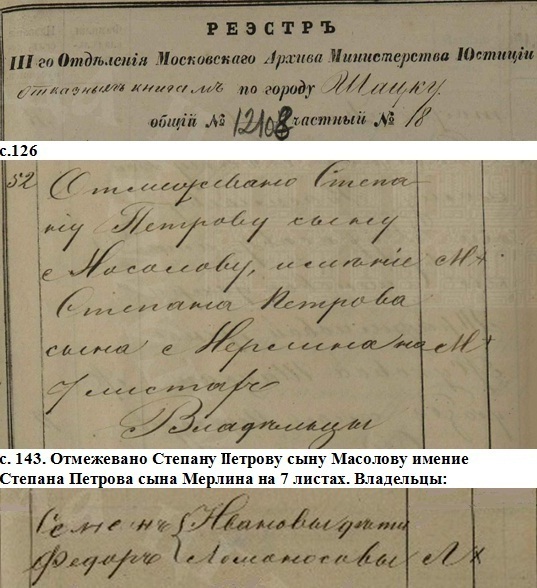 РЕЭСТРЪ
III го Отдѣленія Московскаго Архива Министерства Юстиціи
отказнымъ книгамъ по городу Шацку.
общій № 12108 частный № 18
с.126
52 Отмежевано Степа
ну Петрову сыну
с Мосолову, имѣніе М+
Степана Петрова
сына с Мерлина на М+
7 листахъ
Владѣльцы
с. 143. Отмежевано Степану Петрову сыну Масолову имение
Степана Петрова сына Мерлина на 7 листах. Владельцы:
Семенъ { Ивановы дѣти
Федоръ Ломоносовы Л+